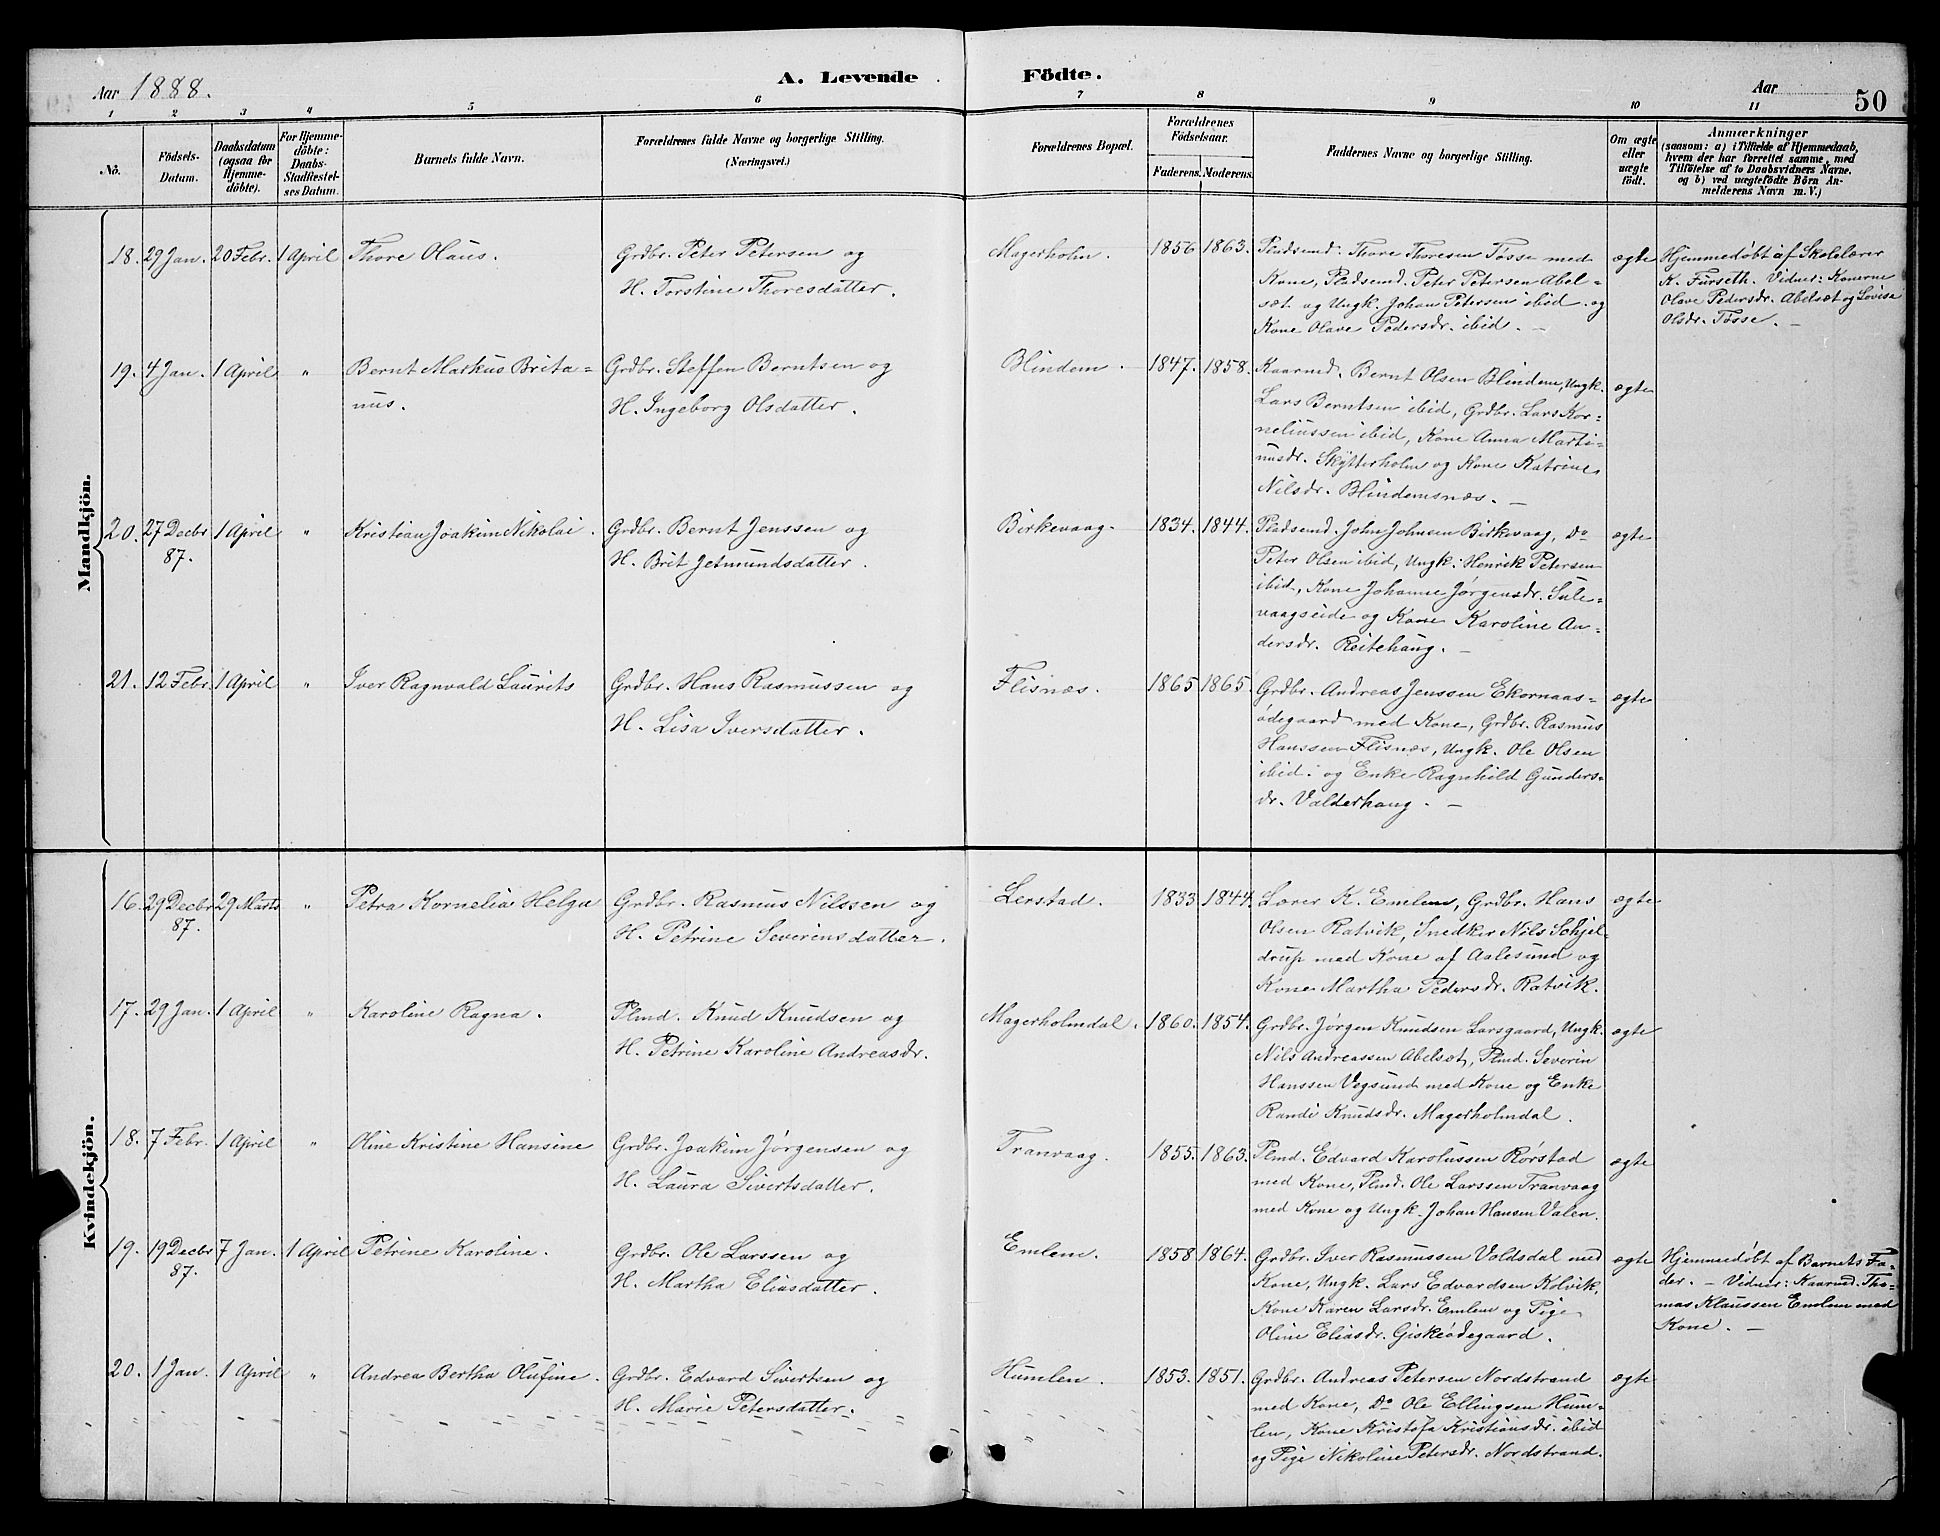 Aar 1888.
A. Levende Födte.
Aar
50
1 2 3 4 5 6 7 8 9 10 11
No.
Födsels-Datum.
Daabsdatum (ogsaa for Hjemmedöbte).
For Hjemmedöbte: Daabs-Stadfæstelses Datum.
Barnets fulde Navn.
Forældrenes fulde Navne og borgerlige Stilling.
(Næringsvei.)
Forældrenes Bopæl.
Forældrenes Födselsaar.
Faderens. Moderens.
Faddernes Navne og borgerlige Stilling.
Om ægte eller uægte födt.
Anmærkninger
(saasom: a) i Tilfælde af Hjemmedaab,
hvem der har forrettet samme, med
Tilföielse af to Daabsvidners Navne.
og b) ved uægtefödte Börn An-
melderens Navn m. V.)
Mandkjön.
18. 29 Jan. 20 Febr. 1 April Thore Olaus. Grdbr. Peter Petersen og
H. Torstine Thoresdatter.
Magerholm. 1856 1863. Pladsmd. Thore Thoresen Tøsse med
Kone, Pladsmd. Peter Petersen Abel-
sæt og Ungk. Johan Petersen ibid. og
Kone Olave Pedersdr. ibid. —
ægte
Hjemmedøbt af Skolelærer
K. Furseth. Vidner: Konerne
Olave Pedersdr. Abelsæt og Lovise
Olsdr. Tøsse. —
19. 4 Jan. 1 April " Bernt Markus Brita-
nus.
Grdbr. Steffen Berntsen og
H. Ingeborg Olsdatter.
Blindem. 1847. 1858. Kaarmd. Bernt Olsen Blindem, Ungk.
Lars Berntsen ibid, Grdbr. Lars Kor-
neliussen ibid, Kone Anna Marti-
nusdr. Skytterholm og Kone Katrine
Nilsdr. Blindemsnæs. —
ægte
20. 27 Decbr 87. 1 April " Kristian Joakim Nikolai. Grdbr. Bernt Jenssen og
H. Brit Jetmundsdatter.
Birkevaag. 1834. 1844. Pladsmd. John Johnsen Birkevaag, Do
Peter Olsen ibid, Ungk. Henrik Petersen
ibid, Kone Johanne Jørgensdr. Sule-
vaagseide og Kone Karoline An-
dersdr. Reitehaug. —
ægte
21. 12 Febr. 1 April " Iver Ragnvald Laurits Grdbr. Hans Rasmussen og
H. Lisa Iversdatter.
Flisnæs. 1865 1865. Grdbr. Andreas Jenssen Ekornaas-
ødegaard med Kone, Grdbr. Rasmus
Hanssen Flisnæs, Ungk. Ole Olsen
ibid. og Enke Ragnhild Gunders-
dr. Valderhaug. —
ægte
Kvindekjön.
16. 29 Decbr 87. 29 Marts " Petra Kornelia Helga Grdbr. Rasmus Nilssen og
H. Petrine Severinsdatter.
Lerstad. 1833 1844. Lærer K. Emlem, Grdbr. Hans
Olsen Ratvik, Snedker Nils Schjel-
drup med Kone af Aalesund og
Kone Martha Pedersdr. Ratvik.
ægte
17. 29 Jan. 1 April " Karoline Ragna. Plmd. Knud Knudsen og
H. Petrine Karoline Andreasdr.
Magerholmdal. 1860. 1854. Grdbr. Jørgen Knudsen Larsgaard, Ungk.
Nils Andreassen Abelsæt, Plmd. Severin
Hanssen Vegsund med Kone og Enke
Randi Knudsdr. Magerholmdal.
ægte
18. 7 Febr. 1 April " Oline Kristine Hansine Grdbr. Joakim Jørgensen og
H. Laura Sivertsdatter.
Tranvaag. 1855. 1863. Plmd. Edvard Karolussen Rørstad
med Kone, Plmd. Ole Larssen Tranvaag
med Kone og Ungk. Johan Hansen Valen.
ægte
19. 19 Decbr 87. 7 Jan. 1 April Petrine Karoline. Grdbr. Ole Larssen og
H. Martha Eliasdatter.
Emlem. 1858 1864. Grdbr. Iver Rasmussen Voldsdal med
Kone, Ungk. Lars Edvardsen Kolvik,
Kone Karen Larsdr. Emlem og Pige
Oline Eliasdr. Giskeødegaard.
ægte
Hjemmedøbt af Barnets Fa-
der. — Vidner: Kaarmd. Tho-
mas Klaussen Emlem med
Kone. —
20. 1 Jan. 1 April " Andrea Bertha Olufine. Grdbr. Edvard Sivertsen og
H. Marie Petersdatter.
Humlen. 1853. 1851. Grdbr. Andreas Petersen Nordstrand
med Kone, Do Ole Ellingsen Hum-
len, Kone Kristofa Kristiansdr. ibid
og Pige Nikoline Petersdr. Nordstrand.
ægte